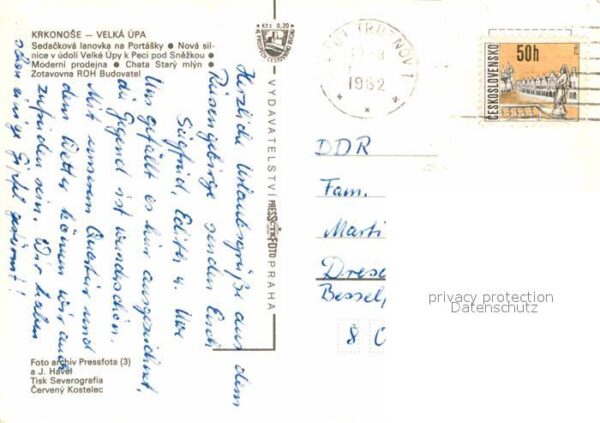 KRKONOŠE – VELKÁ ÚPA
Sedačková lanovka na Portášky ● Nová sil-
nice v údolí Velké Úpy k Peci pod Sněžkou ●
Moderní prodejna ● Chata Starý mlýn ●
Zotavovna ROH Budovatel
Kčs 0,20
VYDAVATELSTVÍ PRESSFOTO PRAHA
Herzliche Urlaubsgrüße aus dem
Riesengebirge senden Euch
Siegfried, Edith u. Uwe
Uns gefällt es hier ausgezeichnet,
die Gegend ist wunderschön.
Mit unserem Quartier und
dem Wetter können wir auch
zufrieden sein. Wir haben
schon einige Gipfel gestürmt!
Foto archiv Pressfota (3)
a J. Havel
Tisk Severografia
Červený Kostelec
TRUTNOV 1
1982
ČESKOSLOVENSKO
50h
DDR
Fam.
Marti
Dresd
Bessel
8
privacy protection
Datenschutz